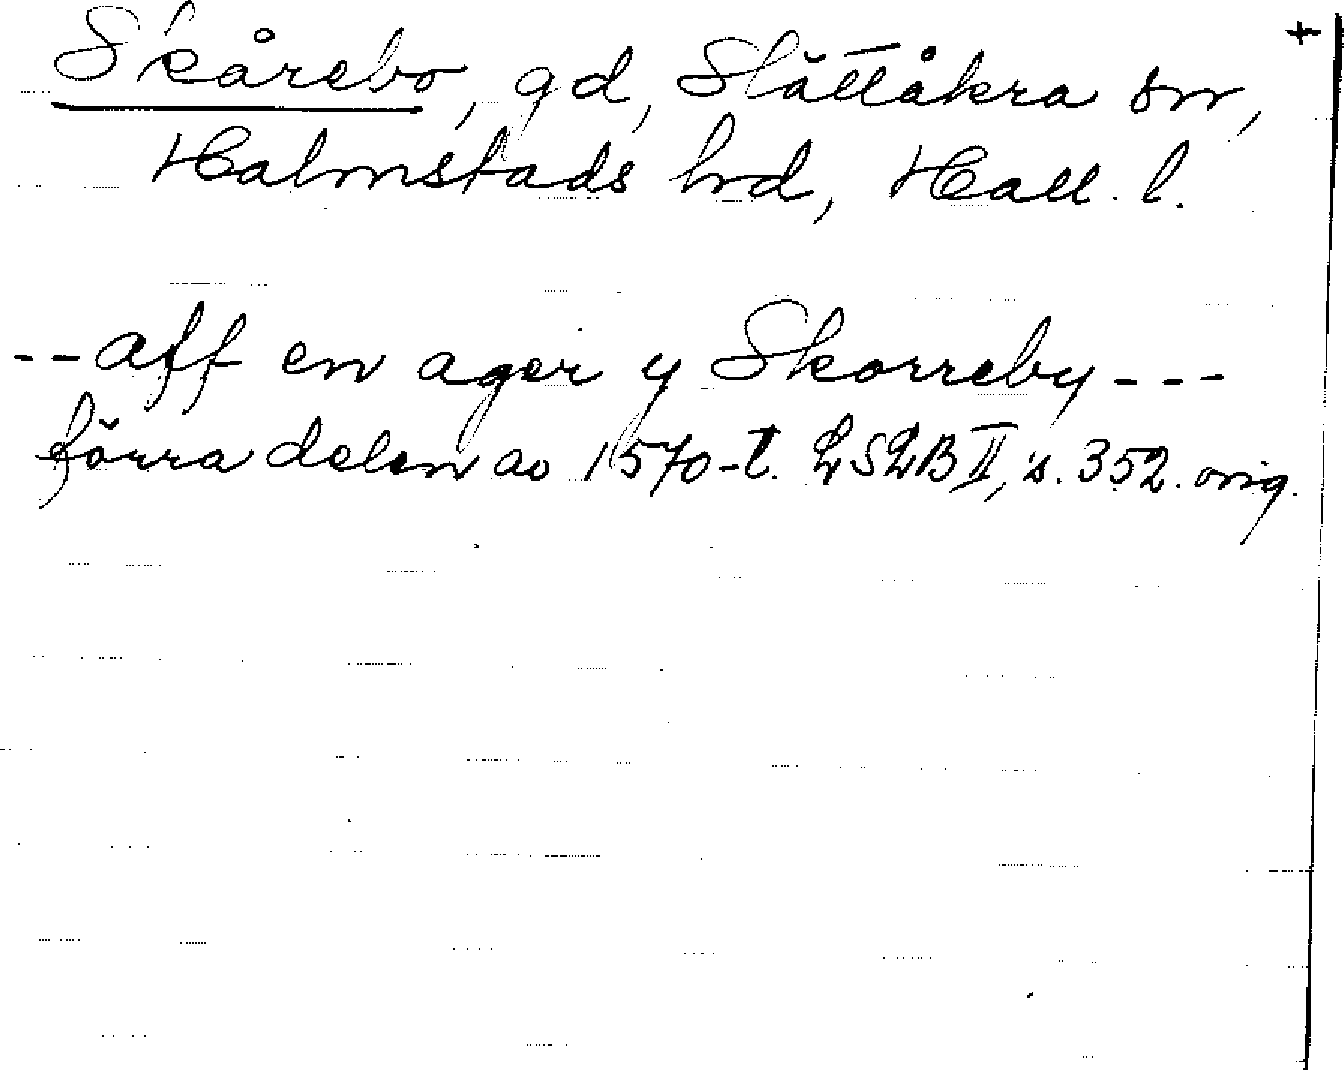 +
Skårebo, gd, Slättåkra sn,
Halmstads hrd, Hall. l.
-- aff en ager y Skorreby ---
förra delen av 1570-t. LSLB II, s. 352. orig.